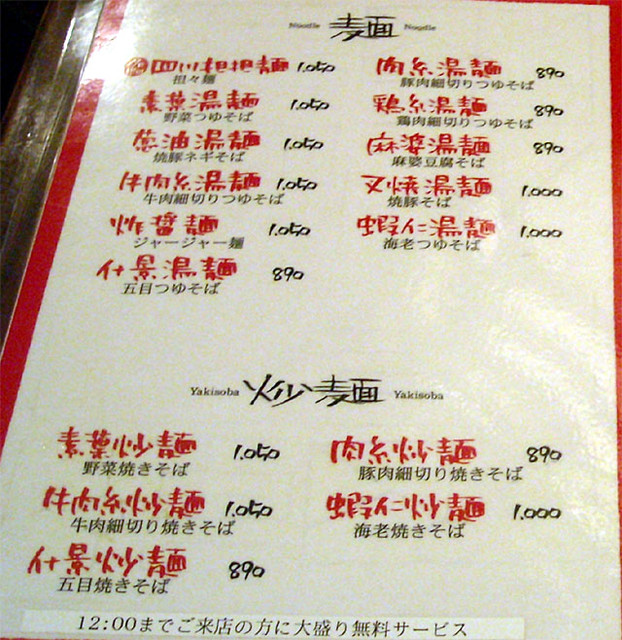 Noodle 麦面 Noodle
四川担担麺 1.050
担々麺
素葉湯麺 1.050
野菜つゆそば
葱油湯麺 1.050
焼豚ネギそば
牛肉糸湯麺 1.050
牛肉細切りつゆそば
炸醤麺 1.050
ジャージャー麺
什景湯麺 890
五目つゆそば
肉糸湯麺 890
豚肉細切りつゆそば
鶏糸湯麺 890
鶏肉細切りつゆそば
麻婆湯麺 890
麻婆豆腐そば
叉焼湯麺 1.000
焼豚そば
蝦仁湯麺 1.000
海老つゆそば
Yakisoba 炒麦面 Yakisoba
素葉炒麺 1.050
野菜焼きそば
牛肉糸炒麺 1.050
牛肉細切り焼きそば
什景炒麺 890
五目焼きそば
肉糸炒麺 890
豚肉細切り焼きそば
蝦仁炒麺 1.000
海老焼きそば
12:00までご来店の方に大盛り無料サービス